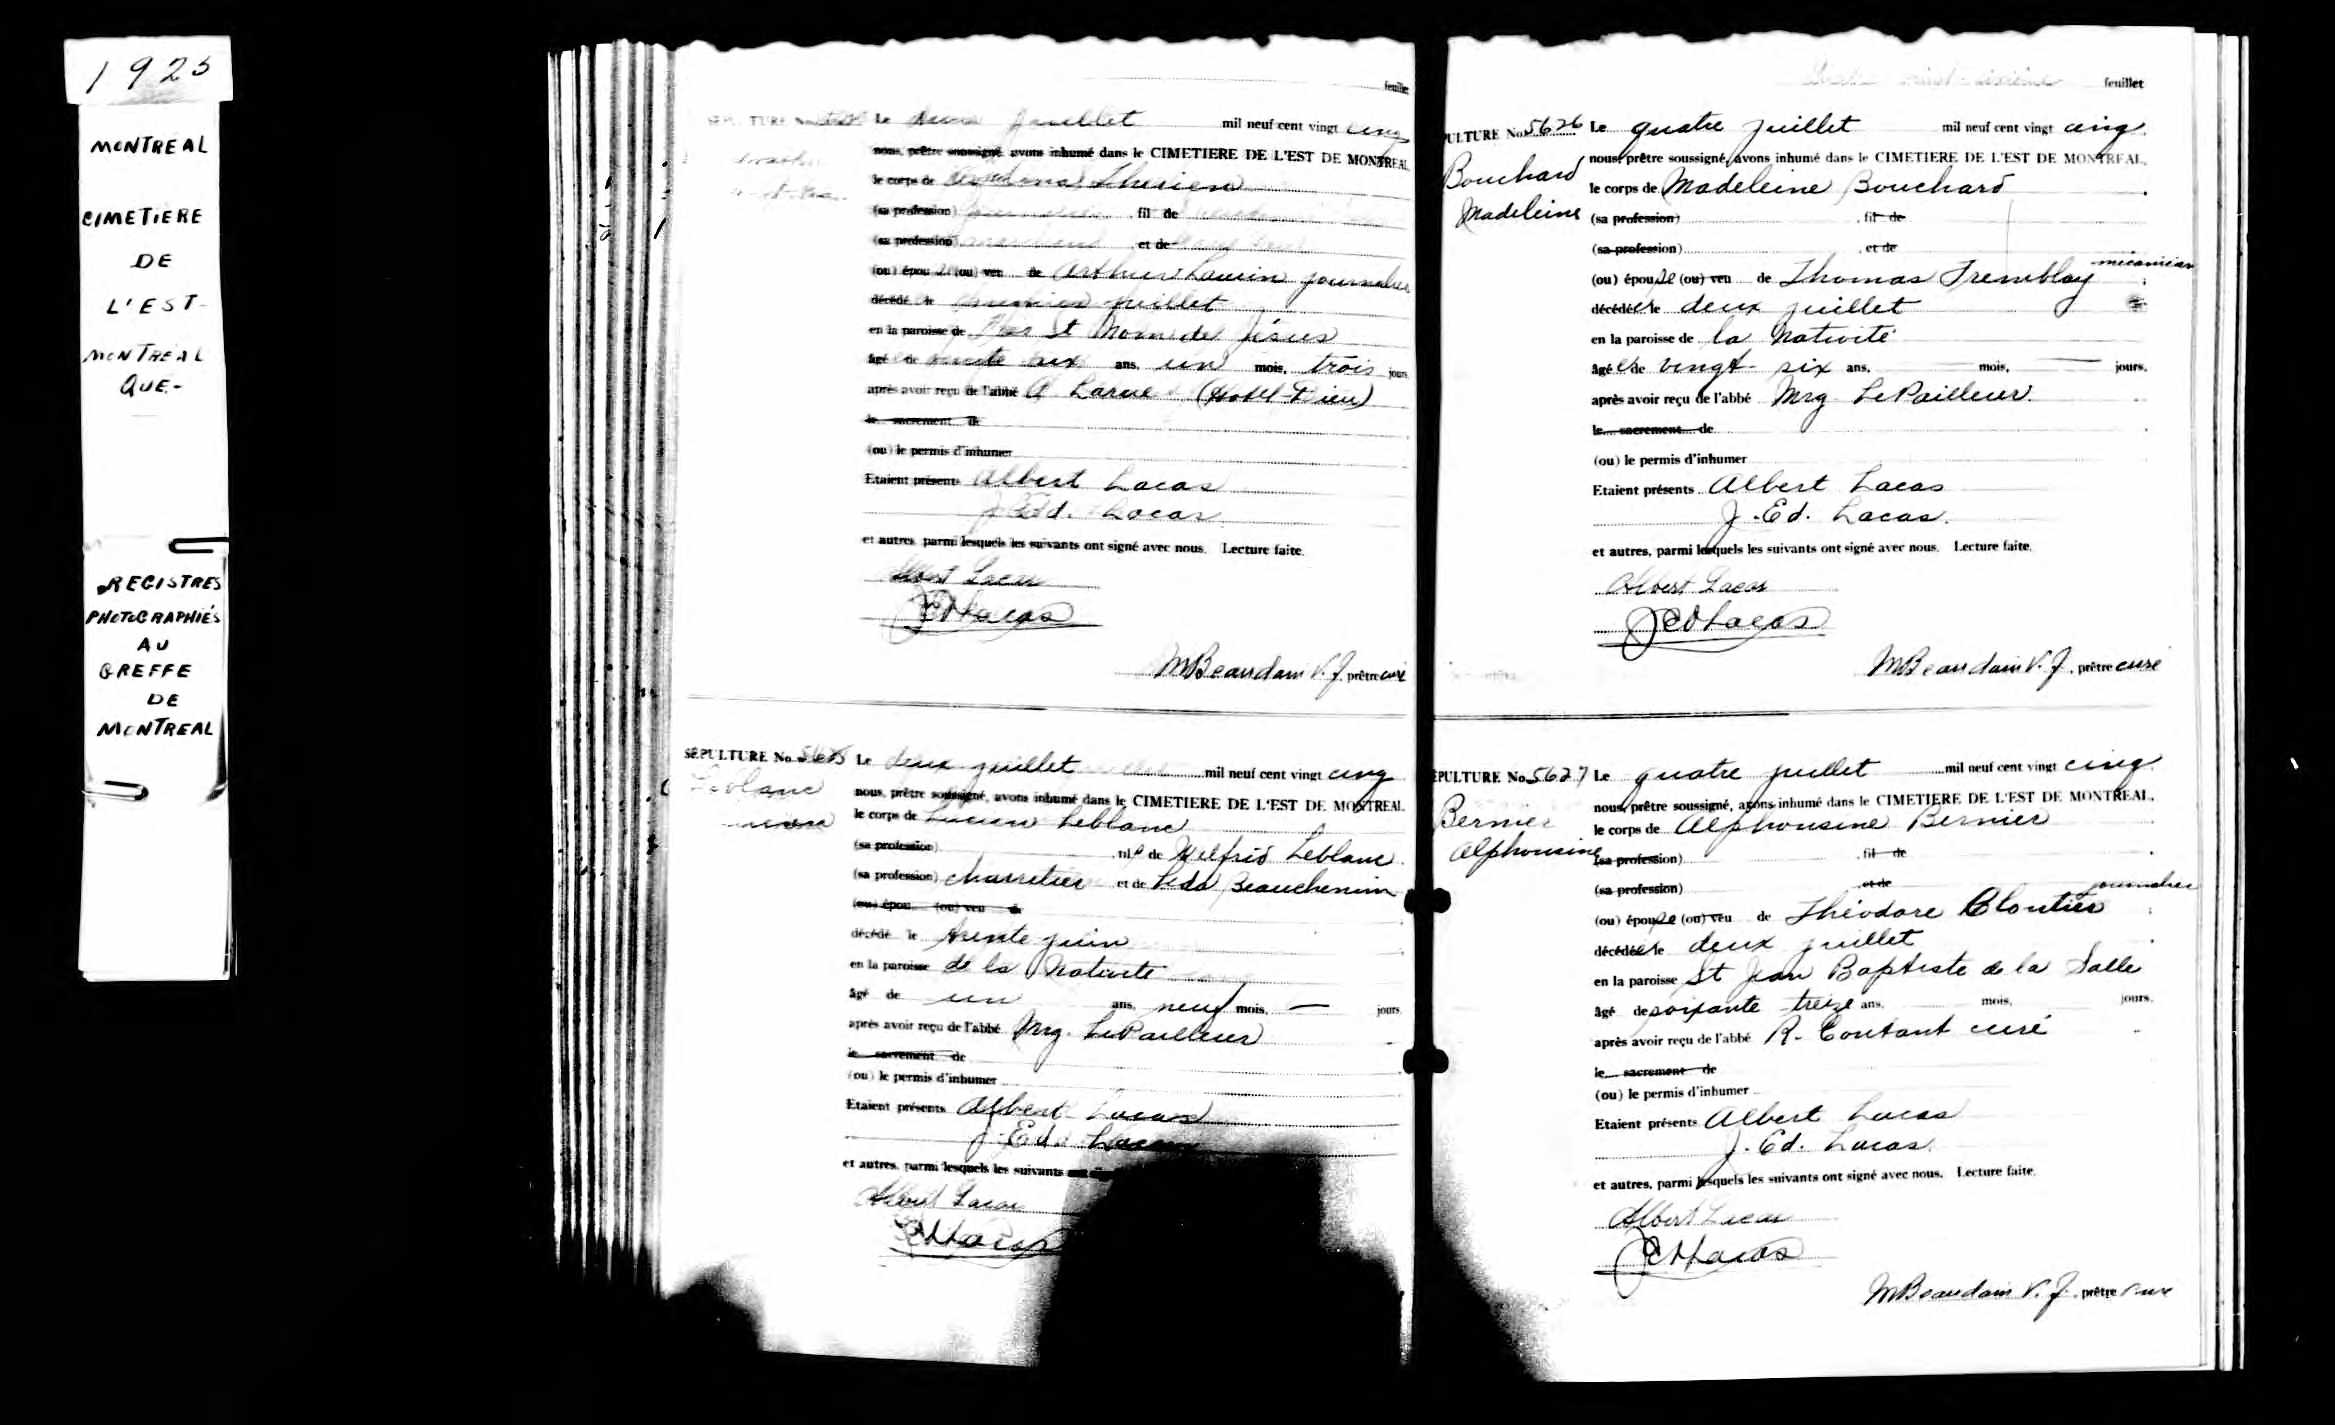 1925
MONTREAL
CIMETIERE
DE
L'EST
MONTREAL
QUE-
REGISTRES
PHOTOGRAPHIÉS
AU
GREFFE
DE
MONTREAL
feuillet
Le deux juillet mil neuf cent vingt cinq
nous, prêtre soussigné, avons inhumé dans le CIMETIERE DE L'EST DE MONTREAL
le corps de Therien
(sa profession) fil de
(sa profession) et de
(ou) épouse (ou) veu de Arthur Laurin journalier
décédé le premier juillet
en la paroisse de St Nom de Jésus
âgé de ans, un mois, trois jours
après avoir reçu de l'abbé A Larue (Hotel-Dieu)
le sacrement de
(ou) le permis d'inhumer
Etaient présents Albert Lacas
J. Ed. Lacas
et autres, parmi lesquels les suivants ont signé avec nous. Lecture faite.
Albert Lacas
J Ed Lacas
M Beaudoin V. J. prêtre curé
SÉPULTURE No 5625 Le deux juillet mil neuf cent vingt cinq
Leblanc
nous, prêtre soussigné, avons inhumé dans le CIMETIERE DE L'EST DE MONTREAL
le corps de Lucien Leblanc
(sa profession) fils de Wilfrid Leblanc
(sa profession) charretier et de Léda Beauchemin
(ou) épou (ou) veu de
décédé le trente juin
en la paroisse de la Nativité
âgé de un ans, neuf mois, — jours
après avoir reçu de l'abbé Mrg. LePailleur
le sacrement de
(ou) le permis d'inhumer
Etaient présents Albert Lacas
J. Ed. Lacas
et autres, parmi lesquels les suivants
Albert Lacas
J Ed Lacas
feuillet
PULTURE No 5626 Le quatre juillet mil neuf cent vingt cinq
Bouchard
Madeleine
nous, prêtre soussigné, avons inhumé dans le CIMETIERE DE L'EST DE MONTREAL,
le corps de Madeleine Bouchard
(sa profession) fil de
(sa profession) et de
(ou) épouse (ou) veu de Thomas Tremblay mécanicien
décédée le deux juillet
en la paroisse de la Nativité
âgée de vingt-six ans, mois, — jours,
après avoir reçu de l'abbé Mrg LePailleur
le sacrement de
(ou) le permis d'inhumer
Etaient présents Albert Lacas
J. Ed. Lacas.
et autres, parmi lesquels les suivants ont signé avec nous. Lecture faite.
Albert Lacas
J Ed Lacas
M Beaudoin V. J. prêtre curé
PULTURE No 5627 Le quatre juillet mil neuf cent vingt cinq
Bernier
Alphonsine
nous, prêtre soussigné, avons inhumé dans le CIMETIERE DE L'EST DE MONTREAL,
le corps de Alphonsine Bernier
(sa profession) fil de
(sa profession) et de
(ou) épouse (ou) veu de Théodore Cloutier journalier
décédée le deux juillet
en la paroisse St Jean Baptiste de la Salle
âgé de soixante treize ans, mois, jours,
après avoir reçu de l'abbé R. Coutant curé
le sacrement de
(ou) le permis d'inhumer
Etaient présents Albert Lacas
J. Ed. Lacas.
et autres, parmi lesquels les suivants ont signé avec nous. Lecture faite.
Albert Lacas
J Ed Lacas
M Beaudoin V. J. prêtre curé